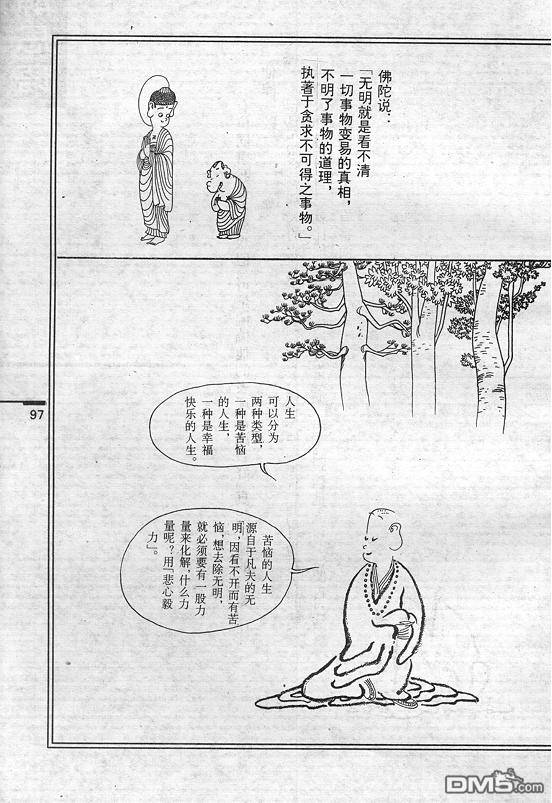 佛陀说：
「无明就是看不清
一切事物变易的真相，
不明了事物的道理，
执著于贪求不可得之事物。」
人生
可以分为
两种类型，
一种是苦恼
的人生，
一种是幸福
快乐的人生。
97
苦恼的人生
源自于凡夫的无
明，因看不开而有苦
恼，想去除无明，
就必须要有一股力
量来化解，什么力
量呢？用「悲心毅
力」。
DM5.com